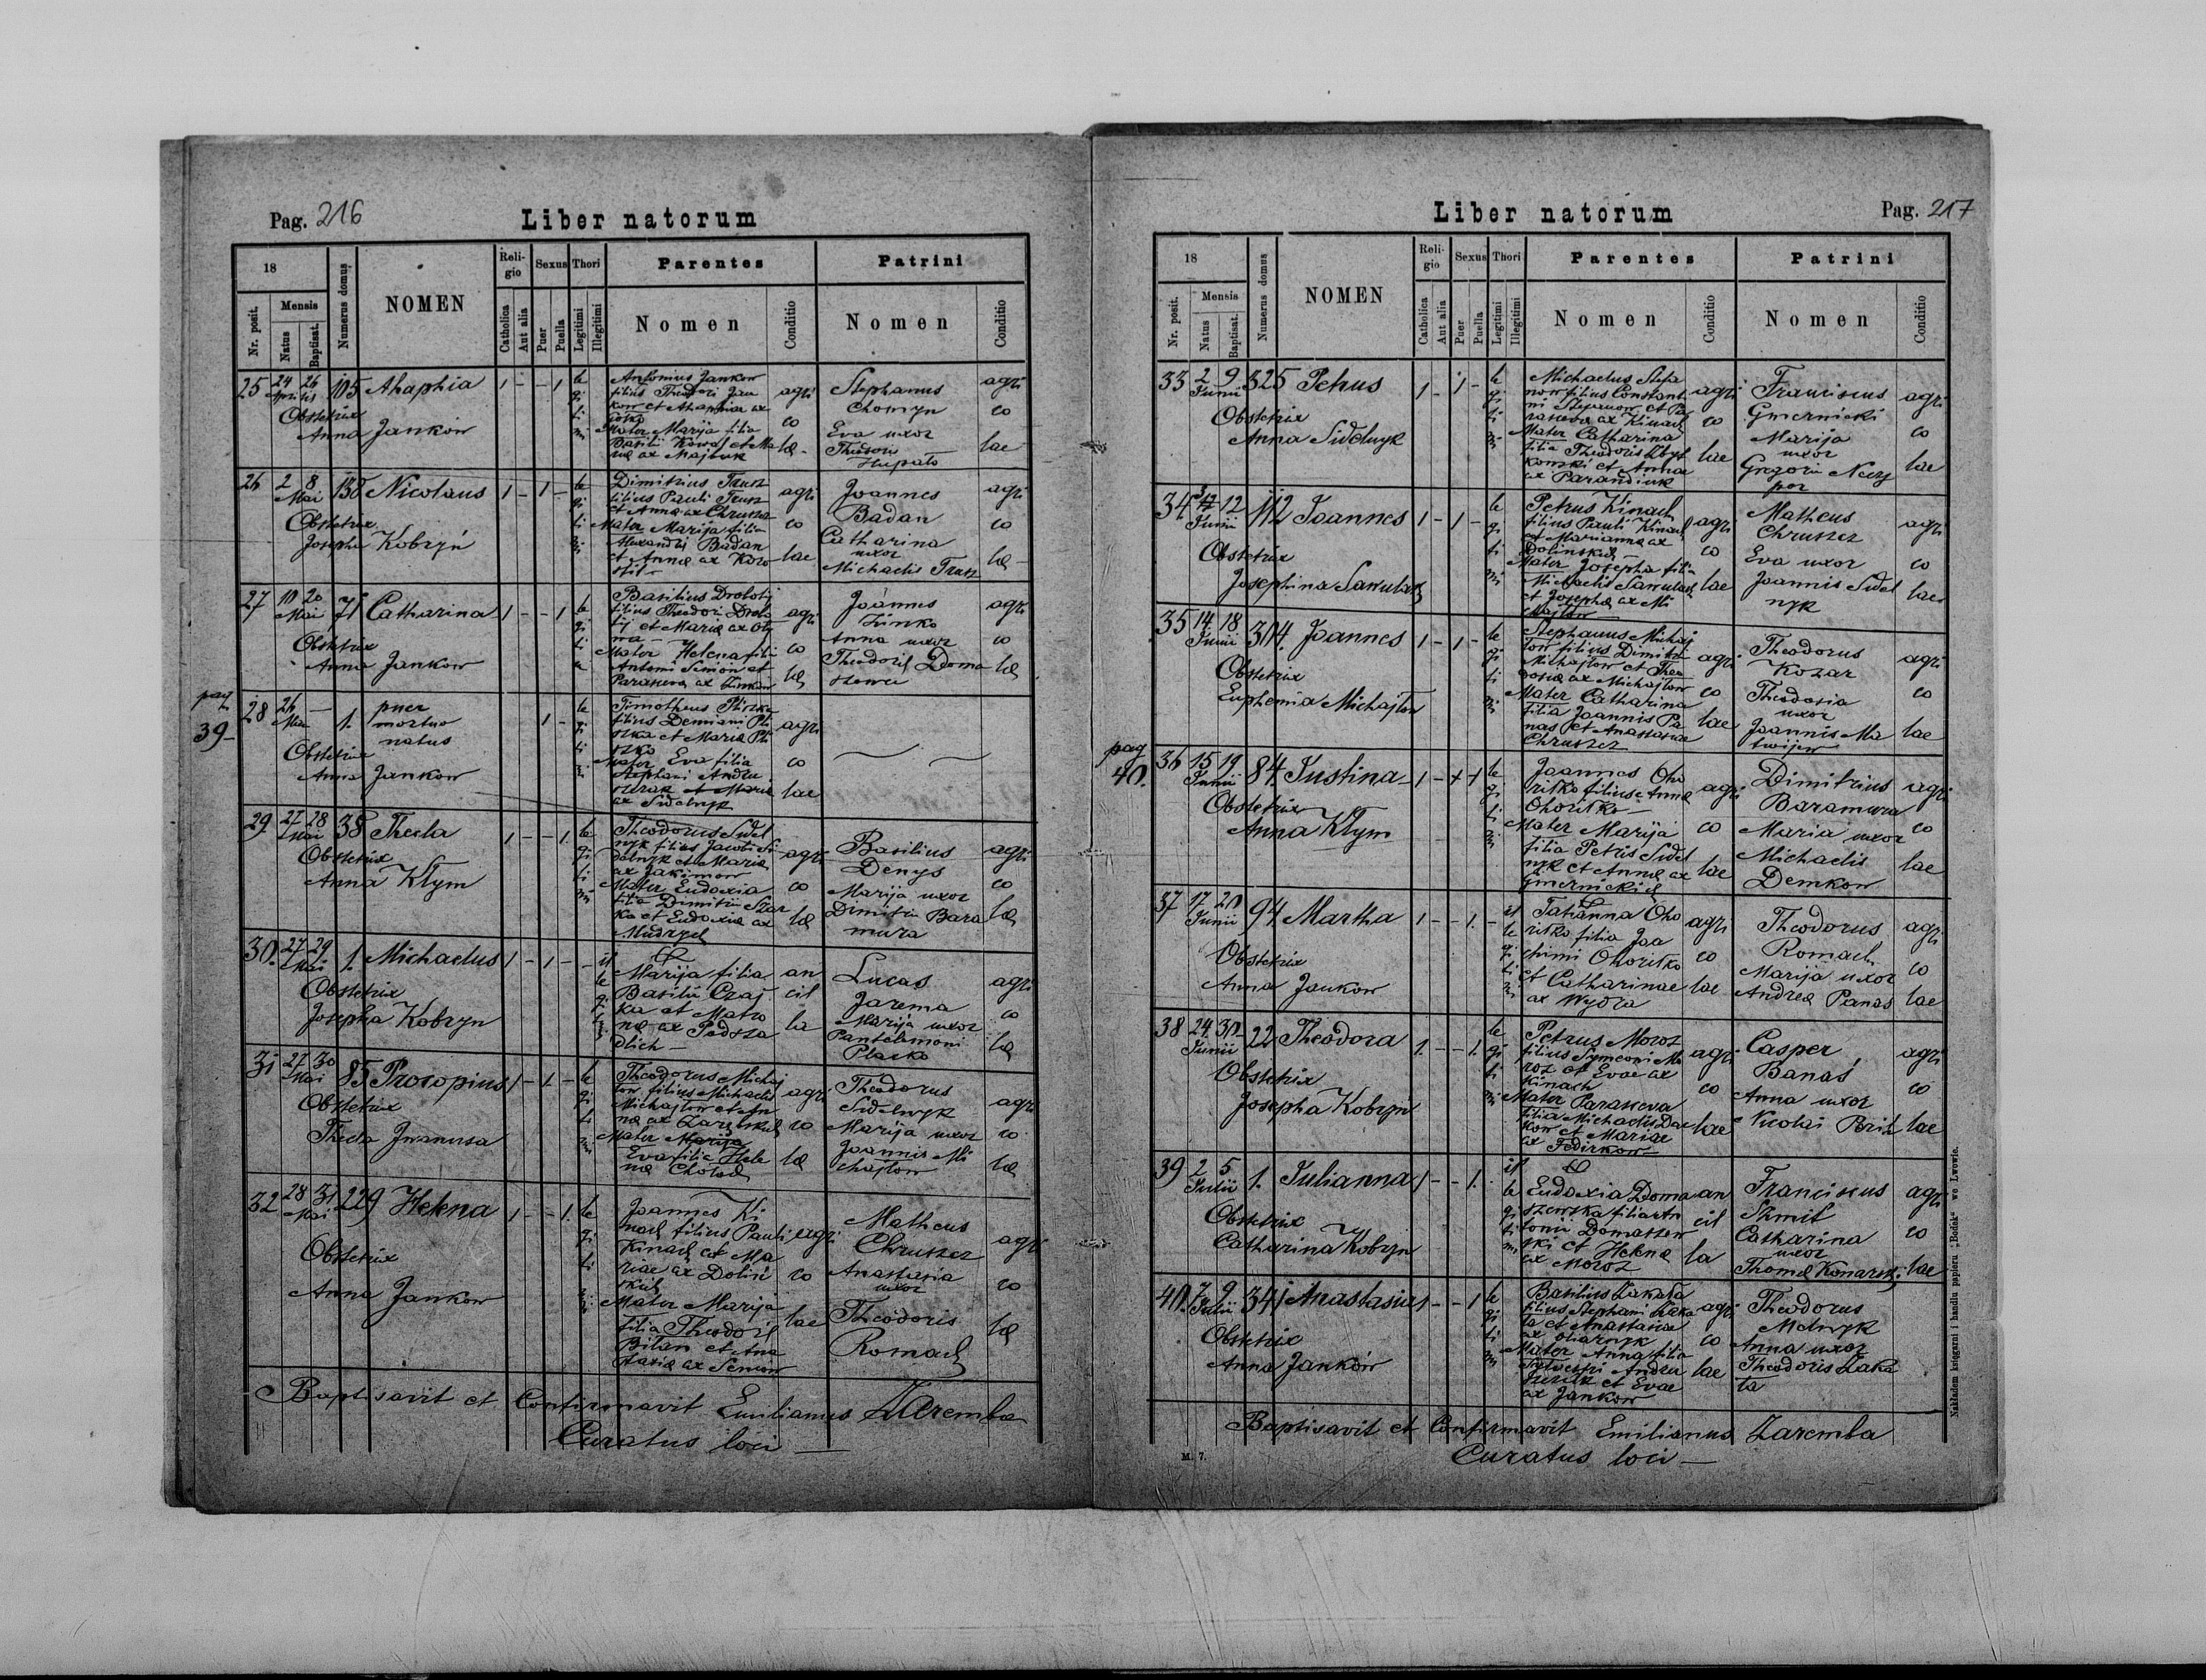 Pag. 216
Liber natorum
18
Nr. posit.
Mensis
Natus
Baptisat.
Numerus domus
NOMEN
Religio
Catholica
Aut alia
Sexus
Puer
Puella
Thori
Legitimi
Illegitimi
Parentes
Nomen
Conditio
Patrini
Nomen
Conditio
25 24 26 105 Ahaphia 1 - - 1
Aprilis
Obstetrix
Anna Jankow
Antonius Jankow
filius Theodori Jan
kow et Ahaphiae ex
Mater Marija filia
Basilii Kowal et Ma
riae ex Majbuk
agri
co
lae
Stephanus
Chomyn
Eva uxor
Theodori
Hupało
agri
co
lae
26 2 8 130 Nicolaus 1 - 1 -
Mai
Obstetrix
Josepha Kobryń
Dimitrius Trusz
filius Pauli Trusz
et Annae ex Chruszcz
Mater Marija filia
Alexandri Badan
et Annae ex Koro
stil
agri
co
lae
Joannes
Badan
Catharina
uxor
Michaelis Trusz
agri
co
lae
27 19 20 71 Catharina 1 - - 1
Mai
Obstetrix
Anna Jankow
Basilius Drobotij
filius Theodori Drobo
tij et Mariae ex
Mater Helena filia
Antoni Simion et
Parasceva ex Zinkow
agri
co
lae
Joannes
Zinko
Anna uxor
Theodori Doma
szewa
agri
co
lae
pag
39
28 26 - 1. puer
Mai
mortuo
natus
1 -
Obstetrix
Anna Jankow
Timotheus Pliszka
filius Demiani Pli
szka et Mariae Pli
szko
Mater Eva filia
Stephani Andru
szczak et Mariae
ex Sidelnyk
agri
co
lae
29 27 28 38 Thecla 1 - - 1.
Mai
Obstetrix
Anna Kłym
Theodorus Sidel
nyk filius Jacobi Si
delnyk et Mariae
ex Jakimow
Mater Eudoxia
filia Dimitrii Szar
ka et Eudoxiae ex
Mudrych
agri
co
lae
Basilius
Denys
Marija uxor
Dimitrii Bara
mura
agri
co
lae
30. 27 29 1. Michaelus 1 - 1 -
Mai
Obstetrix
Josepha Kobryn
Marija filia
Basilii Czaj
ka et Matro
nae ex Podsza
dlich
an
cil
la
Lucas
Jarema
Marija uxor
Pantelemoni
Placko
agri
co
lae
31 27 30 85 Procopius 1 - 1. -
Mai
Obstetrix
Thecla Iwanusa
Theodorus Michaj
łow filius Michaelis
Michajłow et An
nae ex Zaryckich
Mater Marija
Eva filia Hele
nae Chołod
agri
co
lae
Theodorus
Sidelnyk
Marija uxor
Joannis Mi
chajłow
agri
co
lae
32 28 31 229 Helena 1 - - 1.
Mai
Obstetrix
Anna Jankow
Joannes Ki
nach filius Pauli
Kinach et Ma
riae ex Doliń
skich
Mater Marija
filia Theodori
Bilan et Ana
stasiae ex Semion
agri
co
lae
Matheus
Chruszcz
Anastasia
uxor
Theodoris
Romach
agri
co
lae
Baptisavit et Confirmavit Emilianus Zaremba
Curatus loci
Liber natorum
Pag. 217
18
Nr. posit.
Mensis
Natus
Baptisat.
Numerus domus
NOMEN
Religio
Catholica
Aut alia
Sexus
Puer
Puella
Thori
Legitimi
Illegitimi
Parentes
Nomen
Conditio
Patrini
Nomen
Conditio
33 2 9 325 Petrus 1 - 1 -
Junii
Obstetrix
Anna Sidelnyk
Michaelus Stefa
now filius Constanti
ni Stefanow et Pa
rasceva ex Kinach
Mater Catharina
filia Theodoris
kowski et Annae
ex Parandiuk
agri
co
lae
Franciscus
Gmernicki
Marija
uxor
Gregorii Neczy
por
agri
co
lae
34 12 112 Joannes 1 - 1 -
Junii
Obstetrix
Josephina Sawulach
Petrus Kinach
filius Pauli Kinach
et Marianna ex
Dolinskich
Mater Josepha filia
Michaelis Sawulach
et Josepha ex Mi
chajłow
agri
co
lae
Matheus
Chruszcz
Eva uxor
Joannis Sidel
nyk
agri
co
lae
35 14 18 304. Joannes 1 - 1 -
Junii
Obstetrix
Euphemia Michajłow
Stephanus Michaj
łow filius Dimitri
Michajłow et Theo
dosiae ex Michajłow
Mater Catharina
filia Joannis Pa
nas et Anastasiae
Chruszcz
agri
co
lae
Theodorus
Kozar
Theodosia
uxor
Joannis Ma
twijew
agri
co
lae
pag
40.
36 15 19 84. Justina 1 - + 1
Junii
Obstetrix
Anna Kłym
Joannes Oho
ritko filius Annae
Ohoritko
Mater Marija
filia Petris Sidel
nyk et Annae ex
Gmernickich
agri
co
lae
Dimitrius
Baramura
Maria uxor
Michaelis
Demkow
agri
co
lae
37 17 20 94 Martha 1 - - 1. -
Junii
Obstetrix
Anna Jankow
Tatianna Oho
ritko filia Joa
chimi Ohoritko
et Catharinae
ex Wydra
agri
co
lae
Theodorus
Romach
Marija uxor
Andreae Panas
agri
co
lae
38 24. 30. 22 Theodora 1. - - 1.
Junii
Obstetrix
Josepha Kobryń
Petrus Moroz
filius Symeoni Mo
roz et Evae ex
Kinach
Mater Parasceva
filia Michaelis Dac
kow et Mariae
ex Fedirkow
agri
co
lae
Casper
Banaś
Anna uxor
Nicolai Bril
agri
co
lae
39 2 5 1. Julianna 1 - - 1.
Julii
Obstetrix
Catharina Kobryn
Eudoxia Doma
szewska filia An
tonii Domaszew
ski et Helenae
ex Moroz
an
cil
la
Franciscus
Szmit
Catharina
uxor
Thomae Konarski
agri
co
lae
40. 7 9 341 Anastasia 1 - - 1
Julii
Obstetrix
Anna Janków
Basilius Łakata
filius Stephani Łaka
ta et Anastasiae
Mater Anna filia
Sylvestri Andru
et Evae
ex Jankow
agri
co
lae
Theodorus
Melnyk
Anna uxor
Theodoris Łaka
ta
Baptisavit et Confirmavit Emilianus Zaremba
Curatus loci
M. 7.
Nakładem księgarni i handlu papieru „Bodek“ we Lwowie.